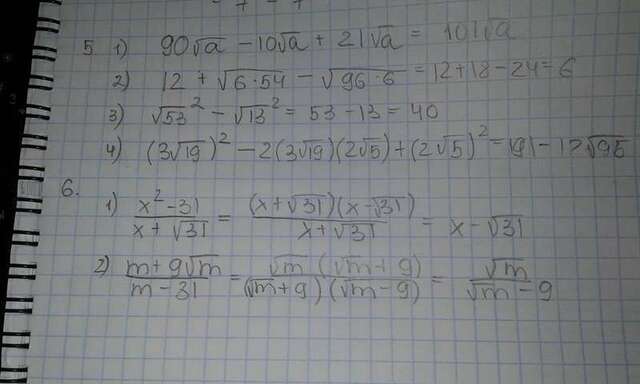 5 1) 90√a − 10√a + 21√a = 101√a
2) 12 + √6·54 − √96·6 = 12 + 18 − 24 = 6
3) √53² − √13² = 53 − 13 = 40
4) (3√19)² − 2(3√19)(2√5) + (2√5)² = 191 − 12√95
6.
1) x² − 31 / x + √31 = (x + √31)(x − √31) / x + √31 = x − √31
2) m + 9√m / m − 31 = √m (√m + 9) / (√m + 9)(√m − 9) = √m / √m − 9